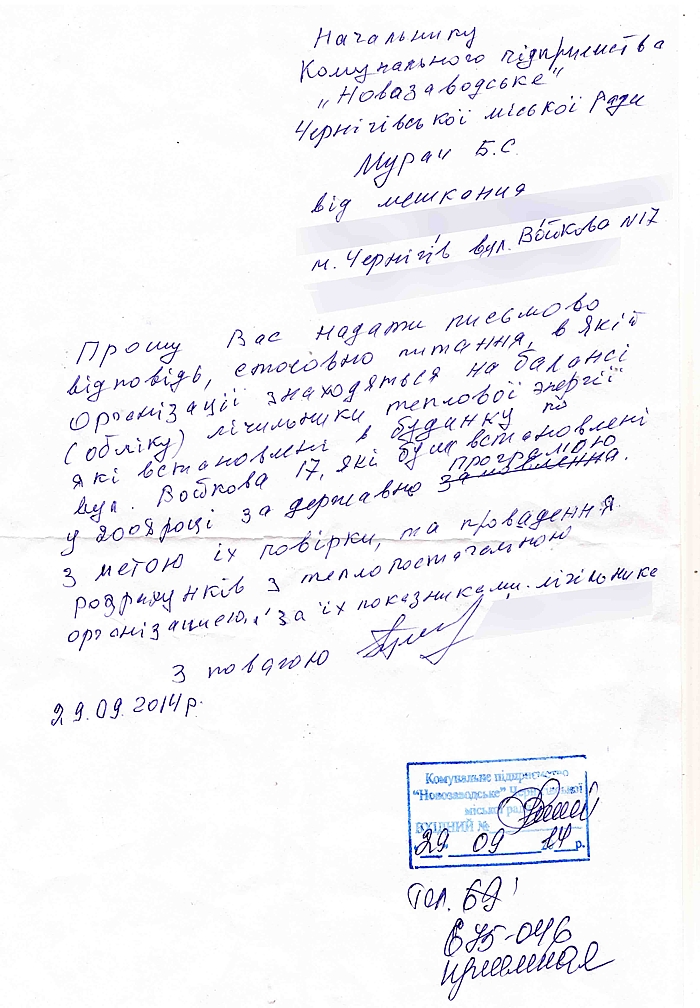 Начальнику
Комунального підприємства
„Новазаводське"
Чернігівської міської Ради
Мурач Б.С.
від мешканця
м. Чернігів вул. Войкова N17
Прошу Вас надати письмово
відповідь, стосовно питання, в якій
організації знаходяться на балансі
(обліку) лічильники теплової энергії
які встановлені в будинку по
вул. Войкова 17, які були встановлені
програмою
у 2008 році за державно замовлення.
З метою їх повірки, та проведення
розрахунків з теплопостачальною
організациею, і за їх показниками. лічільника
З повагою
29.09.2014 р.
Комунальне підприємство
"Новозаводське" Чернігівської
міської ради
ВХІДНИЙ №
29 09 14 р.
Тел. 69
675-046
приемная